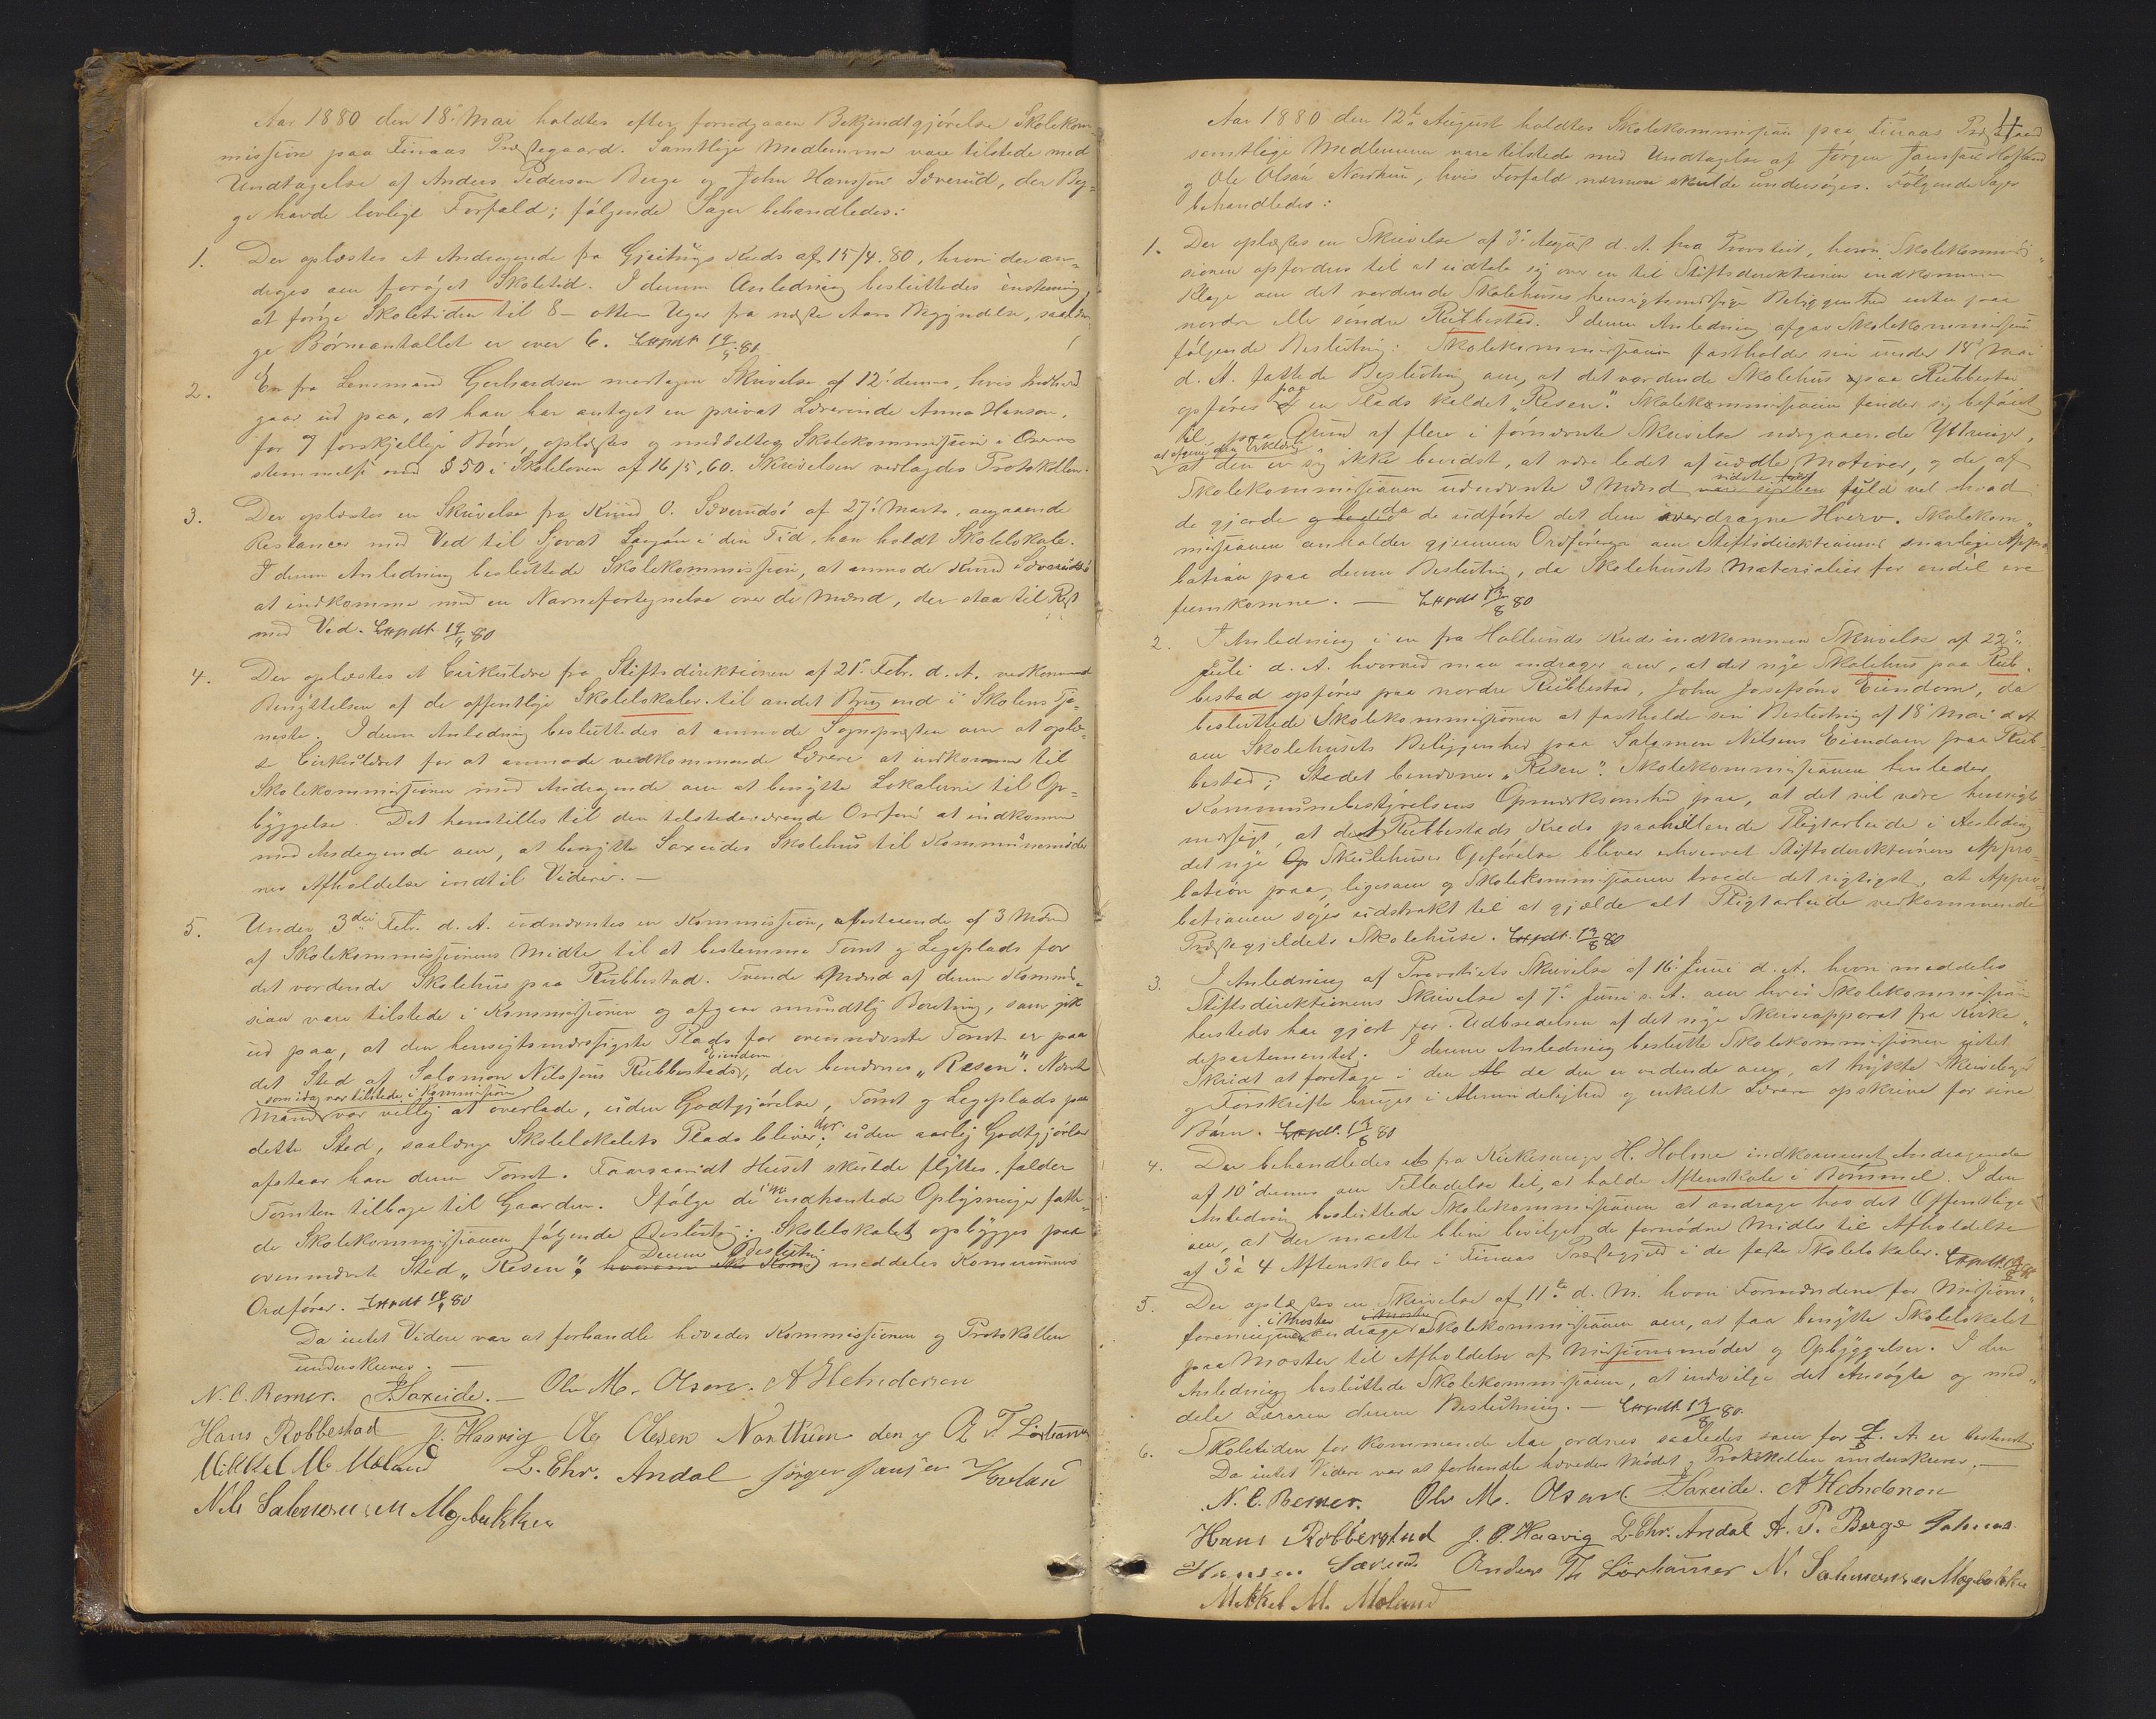 Aar 1880 den 18de Mai holdtes efter foregaaen Bekjendtgjørelse Skolekom-
mission paa Finaas Præstegaard. Samtlige Medlemmer vare tilstede med
Undtagelse af Anders Pederson Berge og John Hansson Sæverud, der Beg-
ge havde lovligt Forfald; følgende Sager behandledes:
1. Der oplæstes et Andragende fra Gjeitungs Kreds af 15/4. 80, hvori der an-
drages om forøget Skoletid. I denne Anledning besluttedes enstemmig,
at forøge Skoletiden til 8 - otte - Uger fra næste Aars Begyndelse, saalæn-
ge Børneantallet er over 6. Expdt 19/5 80
2. En fra Lensmand Gerhardsen modtagen Skrivelse af 12' dennes, hvis Indhold
gaar ud paa, at han har antaget en privat Lærerinde Anna Hanson,
for 7 forskjellige Børn, oplæstes og meddeltes Skolekommissionen i Overens-
stemmelse med § 50 i Skoleloven af 16/5, 60. Skrivelsen vedlagdes Protokollen.
3. Der oplæstes en Skrivelse fra Knud O. Sæverudsø af 27' Marts, angaaende
Restancer med Ved til Sjovat i den Tid, han holdt Skolelokale.
I denne Anledning besluttede Skolekommission, at anmode Knud Sæverudsø
at indkomme med en Navnefortegnelse over de Mænd, der staa til Rest
med Ved. Expdt. 19/5 80
4. Der oplæstes et Cirkulære fra Stiftsdirektionen af 21' Febr. d. A. vedkommende
Benyttelsen af de offentlige Skolelokaler til andet Brug end i Skolens Tje-
neste. I denne Anledning besluttedes at anmode Sognepræsten om at oplæ-
se Cirkulæret for at anmode vedkommende Lærere at indkomme til
Skolekommissionen med Andragende om at benytte Lokalerne til Op-
byggelse. Det henstilles til den tilstedeværende Ordfører at indkomme
med Andragende om, at benytte Saxeides Skolehus til Kommunemøder-
nes Afholdelse indtil Videre. —
5. Under 3die Febr. d. A. udnævntes en Kommission, bestaaende af 3 Mænd
af Skolekommissionens Midte til at bestemme Tomt og Legeplads for
det vordende Skolehus paa Rubbestad. Tvende Mænd af denne Kommis-
sion vare tilstede i Kommissionen og afgave mundtlig Beretning, som gik
ud paa, at den hensigtsmæssigste Plads for ovennævnte Tomt er paa
det Sted af Salomon Nilssøns Rubbestads Eiendom, der benævnes „Resen“. Nævnte
Mand som idag var tilstede i Kommission var villig at overlade, uden Godtgjørelse, Tomt og Legeplads paa
dette Sted, saalænge Skolelokalets Plads bliver der; uden aarlig Godtgjørelse
afstaar han denne Tomt. Faarsaavidt Huset skulde flyttes, falder
Tomten tilbage til Gaarden. Ifølge de indhentede Oplysninger fatte-
de Skolekommissionen følgende Beslutning: Skolelokalet opbygges paa
ovennævnte Sted „Resen“. Denne Beslutning meddeles Kommunens
Ordfører. Expdt 19/5 80
Da intet Videre var at forhandle hævedes Kommissionen og Protokollen
underskreves. —
N. C. Bemer. J. Saxeide. — Ole M. Olsen. A Helvidersen
Hans Robbestad J. Haavig Ole Olesen Northun den y A T Lörhammer
Mikkel M. Moland L. Chr. Andal Jørgen Jansen Hovland
Nils Salemonsen Møgbukken
4
Aar 1880 den 12te August holdtes Skolekommission paa Finaas Præstegaard
samtlige Medlemmer vare tilstede med Undtagelse af Jørgen Jansen Hofland
og Ole Olsøn Northun, hvis Forfald nærmere skulde undersøges. Følgende Sager
behandledes:
1. Der oplæstes en Skrivelse af 3' August d. A. fra Provstiet, hvori Skolekommis-
sionen opfordres til at udtale sig over en til Stiftsdirektionen indkommen
Klage om det vordende Skolehuses hensigtsmæssige Beliggenhed enten paa
nordre eller søndre Rubbestad. I denne Anledning afgav Skolekommissionen
følgende Beslutning: Skolekommissionen fastholder sin under 18' Mai
d. A. fattede Beslutning om, at det vordende Skolehus paa Rubbestad
opføres paa en Plads kaldet „Resen“. Skolekommissionen finder sig beføiet
til, paa Grund af flere i fornævnte Skrivelse nærgaaende Yttringer,
at afgive den Erklæring at den er sig ikke bevidst, at være ledet af uædle Motiver, og de af
Skolekommissionen udnævnte 3 Mænd vidste fuld vel hvad
de gjorde da de udførte det dem overdragne Hverv. Skolekom-
missionen anholder gjennem Ordføreren om Stiftsdirektionens snarlige Appro-
bation paa denne Beslutning, da Skolehusets Materialier for endel ere
fremkomne. — Expdt 13/8 80
2. I Anledning i en fra Hollunds Kreds indkommen Skrivelse af 22'
Juli d. A. hvormed man andrager om, at det nye Skolehus paa Rub-
bestad opføres paa nordre Rubbestad, John Josephsøns Eiendom, da
besluttede Skolekommissionen at fastholde sin Beslutning af 18' Mai d A
om Skolehusets Beliggenhed paa Salomon Nilsens Eiendom paa Rub-
bestad; Stedet benævnes „Resen“. Skolekommissionen henleder
Kommunebestyrelsens Opmærksomhed paa, at det vil være hensigts-
mæssigt, at det Rubbestads Kreds paahvilende Pligtarbeide i Anledning
det nye Skolehuses Opførelse bliver erhvervet Stiftsdirektionens Appro-
bation paa, ligesom og Skolekommissionen troede det rigtigst, at Appro-
bationen søges udstrakt til at gjælde alt Pligtarbeide vedkommende
Præstegjeldets Skolehuse. Expdt. 13/8 80
3. I Anledning af Provstiets Skrivelse af 16' Juni d. A. hvori meddeles
Stiftsdirektionens Skrivelse af 7' Juni s. A. om hvis Skolekommission
hersteds har gjort for Udbredelsen af det nye Skriveapparat fra Kirke-
departementet. I denne Anledning beslutte Skolekommissionen intet
Skridt at foretage i den da den er vidende om, at trykte Skrivebøger
og Forskrifte bruges i Almindelighed og enkelte Lærere opskrive for sine
Børn. Expdt. 13/8 80
4. Der behandledes et fra Kirkesanger H. Holme indkommet Andragende
af 10' dennes om Tilladelse til, at holde Aftenskole i Bømmel. I den
Anledning besluttede Skolekommissionen at andrage hos det Offentlige
om, at der maatte blive bevilget de fornødne Midler til Afholdelse
af 3 à 4 Aftenskoler i Finaas Præstegjeld i de faste Skolelokaler. Expdt. 13/8 80
5. Der oplæstes en Skrivelse af 11te d. M. hvori Formændene for Missions-
foreningen i Moster andrager Skolekommissionen om, at faa benytte Skolelokalet
paa Moster til Afholdelse af Missionsmøder og Opbyggelser. I den
Anledning besluttede Skolekommissionen, at indvilge det Ansøgte og med-
dele Læreren denne Beslutning. — Expdt. 13/8 80.
6. Skoletiden for kommende Aar ordnes saaledes som for d. A. er bestemt.
Da intet Videre var at forhandle hævedes Mødet og Protokollen underskreves. —
N. C. Bemer. Ole M. Olsen J Saxeide. A Helvidersen
Hans Robberstad J. O. Haavig L. Chr. Andal A. P. Berge Johnas
Hansen Sæverud Anders Th Lörhammer N. Salemonsen Møgbukken
Mikkel M. Moland